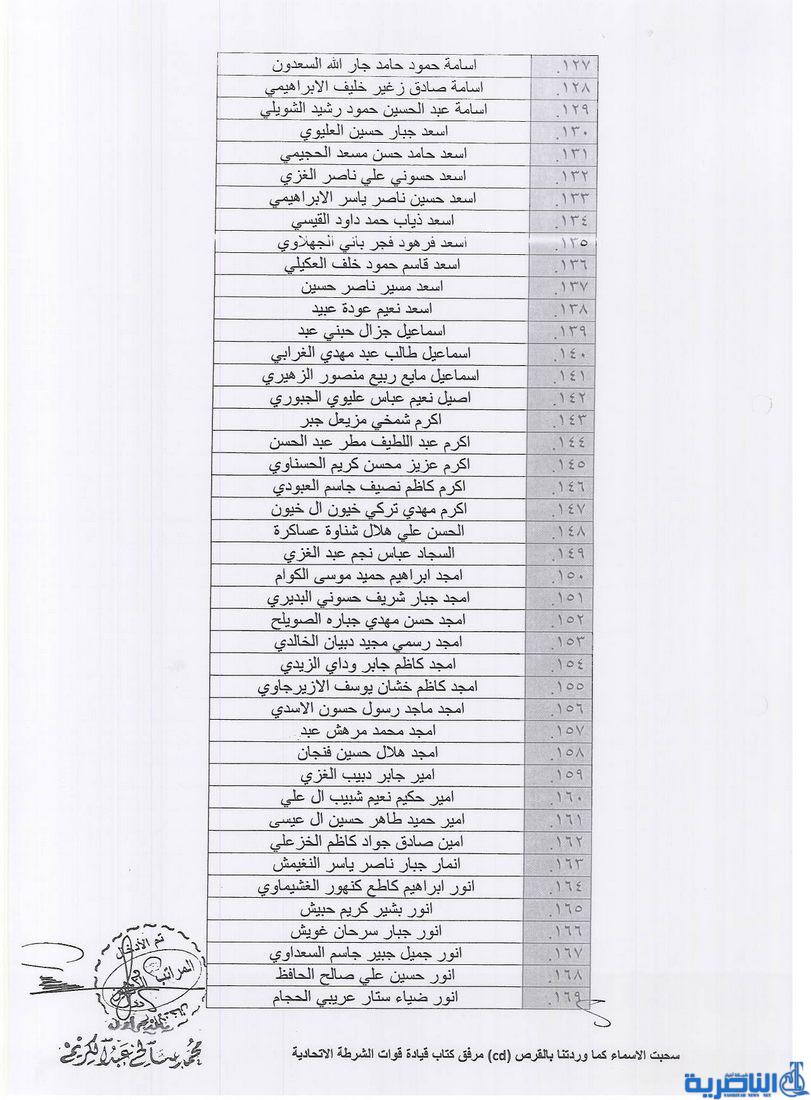 ١٢٧. اسامة حمود حامد جار الله السعدون
١٢٨. اسامة صادق زغير خليف الابراهيمي
١٢٩. اسامة عبد الحسين حمود رشيد الشويلي
١٣٠. اسعد جبار حسين العليوي
١٣١. اسعد حامد حسن مسعد الحجيمي
١٣٢. اسعد حسوني علي ناصر الغزي
١٣٣. اسعد حسين ناصر ياسر الابراهيمي
١٣٤. اسعد ذياب حمد داود القيسي
١٣٥. اسعد فرهود فجر باني الجهلاوي
١٣٦. اسعد قاسم حمود خلف العكيلي
١٣٧. اسعد مسير ناصر حسين
١٣٨. اسعد نعيم عودة عبيد
١٣٩. اسماعيل جزال حبني عبد
١٤٠. اسماعيل طالب عبد مهدي الغرابي
١٤١. اسماعيل مايع ربيع منصور الزهيري
١٤٢. اصيل نعيم عباس عليوي الجبوري
١٤٣. اكرم شمخي مزيعل جبر
١٤٤. اكرم عبد اللطيف مطر عبد الحسن
١٤٥. اكرم عزيز محسن كريم الحسناوي
١٤٦. اكرم كاظم نصيف جاسم العبودي
١٤٧. اكرم مهدي تركي خيون ال خيون
١٤٨. الحسن علي هلال شناوة عساكرة
١٤٩. السجاد عباس نجم عبد الغزي
١٥٠. امجد ابراهيم حميد موسى الكوام
١٥١. امجد جبار شريف حسوني البديري
١٥٢. امجد حسن مهدي جباره الصويلح
١٥٣. امجد رسمي مجيد دبيان الخالدي
١٥٤. امجد كاظم جابر وداي الزيدي
١٥٥. امجد كاظم خشان يوسف الازيرجاوي
١٥٦. امجد ماجد رسول حسون الاسدي
١٥٧. امجد محمد مرهش عبد
١٥٨. امجد هلال حسين فنجان
١٥٩. امير جابر دبيب الغزي
١٦٠. امير حكيم نعيم شبيب ال علي
١٦١. امير حميد طاهر حسين ال عيسى
١٦٢. امين صادق جواد كاظم الخزعلي
١٦٣. انمار جبار ناصر ياسر النغيمش
١٦٤. انور ابراهيم كاطع كنهور الغشيماوي
١٦٥. انور بشير كريم حبيش
١٦٦. انور جبار سرحان غويش
١٦٧. انور جميل جبير جاسم السعداوي
١٦٨. انور حسين علي صالح الحافظ
١٦٩. انور ضياء ستار عريبي الحجام
تم الأدخال
المراتب
محمد صالح عبد الكريم
سحبت الاسماء كما وردتنا بالقرص (cd) مرفق كتاب قيادة قوات الشرطة الاتحادية
شبكة أخبار
الناصرية
NASIRIYAH NEWS NET